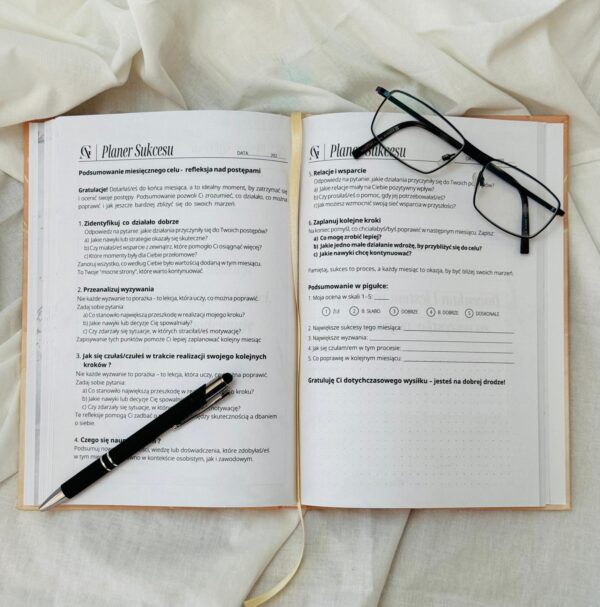 Planer Sukcesu
DATA 202
Podsumowanie miesięcznego celu - refleksja nad postępami
Gratulacje! Dotarłaś/eś do końca miesiąca, a to idealny moment, by zatrzymać się
i ocenić swoje postępy. Podsumowanie pozwoli Ci zrozumieć, co działało, co można
poprawić i jak jeszcze bardziej zbliżyć się do swoich marzeń.
1. Zidentyfikuj co działało dobrze
Odpowiedz na pytanie: jakie działania przyczyniły się do Twoich postępów?
a) Jakie nawyki lub strategie okazały się skuteczne?
b) Czy miałaś/eś wsparcie z zewnątrz, które pomogło Ci osiągnąć więcej?
c) Które momenty były dla Ciebie przełomowe?
Zanotuj wszystko, co według Ciebie było wartością dodaną w tym miesiącu.
To Twoje "mocne strony", które warto kontynuować.
2. Przeanalizuj wyzwania
Nie każde wyzwanie to porażka - to lekcja, która uczy, co można poprawić.
Zadaj sobie pytania:
a) Co stanowiło największą przeszkodę w realizacji mojego kroku?
b) Jakie nawyki lub decyzje Cię spowalniały?
c) Czy zdarzały się sytuacje, w których straciłaś/eś motywację?
Zapisywanie tych punktów pomoże Ci lepiej zaplanować kolejne miesiąc
3. Jak się czułaś/czułeś w trakcie realizacji swojego kolejnych
kroków ?
Nie każde wyzwanie to porażka – to lekcja, która uczy, co można poprawić.
Zadaj sobie pytania:
a) Co stanowiło największą przeszkodę w kroku?
b) Jakie nawyki lub decyzje Cię spowalniały?
c) Czy zdarzały się sytuacje, w motywację?
Te refleksje pomogą Ci zadbać o między skutecznością a dbaniem
o siebie.
4. Czego się ?
Podsumuj wiedzę lub doświadczenia, które zdobyłaś/eś
w tym w kontekście osobistym, jak i zawodowym.
Planer Sukcesu
5. Relacje i wsparcie
Odpowiedz na pytanie: jakie działania przyczyniły się do Twoich
a) Jakie relacje miały na Ciebie pozytywny wpływ?
b) Czy prosiłaś/eś o pomoc, gdy jej potrzebowałaś/eś?
c) Jak możesz wzmocnić swoją sieć wsparcia w przyszłości?
6. Zaplanuj kolejne kroki
Na koniec pomyśl, co chciałabyś/byś poprawić w następnym miesiącu. Zapisz:
a) Co mogę zrobić lepiej?
b) Jakie jedno małe działanie wdrożę, by przybliżyć się do celu?
c) Jakie nawyki chcę kontynuować?
Pamiętaj, sukces to proces, a każdy miesiąc to okazja, by być bliżej swoich marzeń.
Podsumowanie w pigułce:
1. Moja ocena w skali 1-5:
1 ŹLE 2 B. SŁABO 3 DOBRZE 4 B. DOBRZE 5 DOSKONALE
2. Największe sukcesy tego miesiąca:
3. Największe wyzwania:
4. Jak się czułam/em w tym procesie:
5. Co poprawię w kolejnym miesiącu:
Gratuluję Ci dotychczasowego wysiłku – jesteś na dobrej drodze!